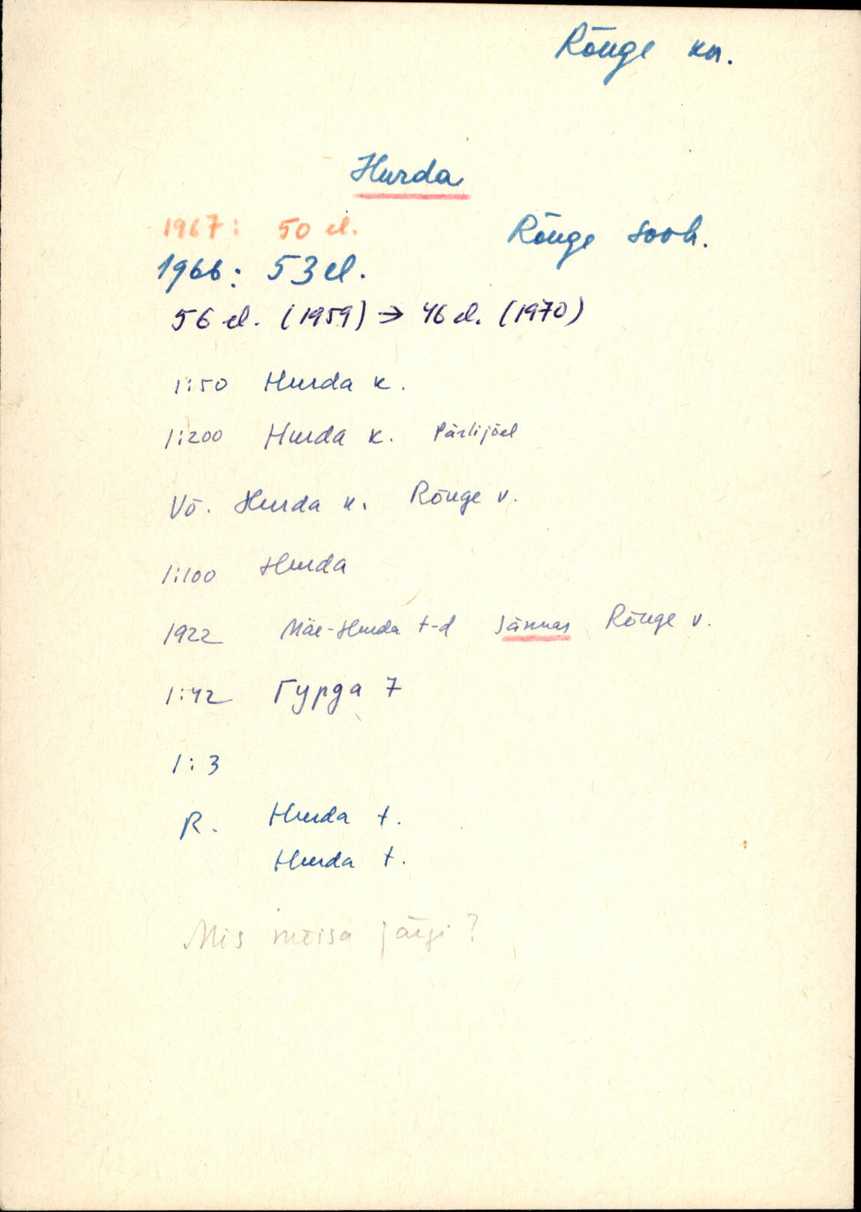 Rõuge kn.
Hurda
1967: 50 el.
Rõuge sovh.
1966: 53 el.
56 el. (1959) → 46 el. (1970)
1:50 Hurda k.
1:200 Hurda k. Pärlijõel
Võ. Hurda k. Rõuge v.
1:100 Hurda
1922 Mäe-Hurda t-d Sännas Rõuge v.
1:42 Гурда 7
1:3
R. Hurda t.
Hurda t.
Mis mõisa järgi?